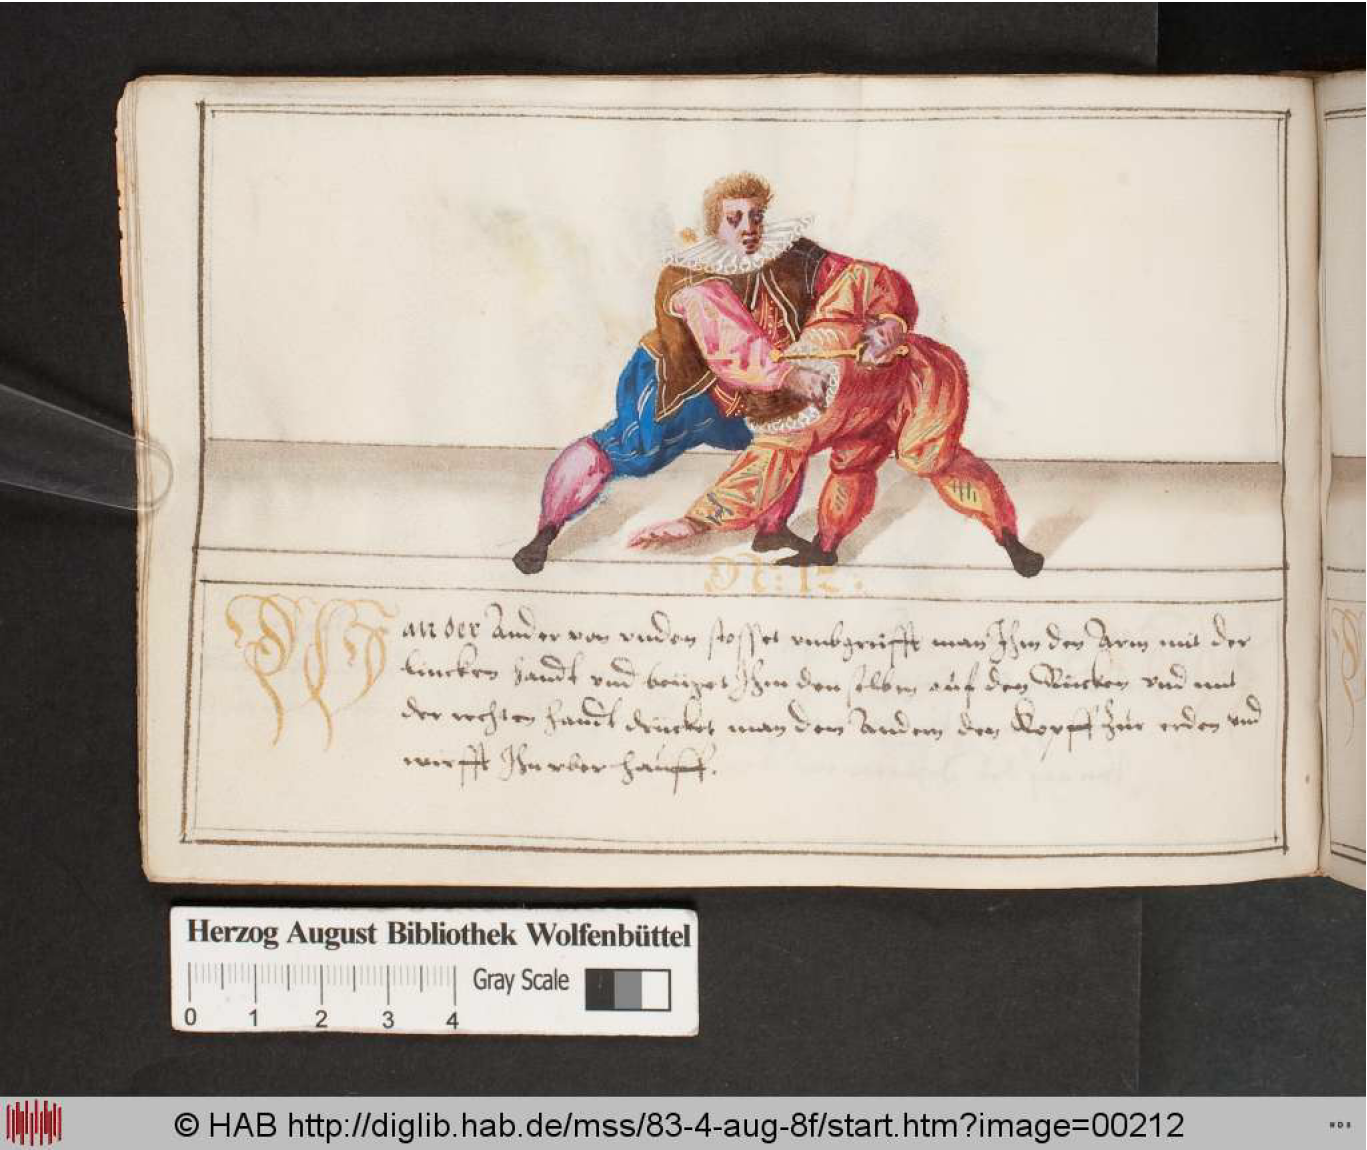 N: 12:
Wan der Ander von vnden stosset vmbgreifft man Ihm den Arm mit der
lincken handt vnd beüget Ihm den selben auf den Rücken vnd mit
der rechten handt drücket man dem Andern den Kopff zur erden vnd
wirfft Ihn vber hauff.
Herzog August Bibliothek Wolfenbüttel
Gray Scale
0 1 2 3 4
© HAB http://diglib.hab.de/mss/83-4-aug-8f/start.htm?image=00212